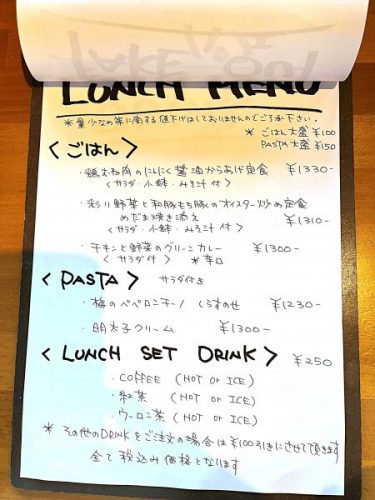 LUNCH MENU
* 量少なめ等に関する値下げはしておりませんのでご了承下さい。
* ごはん大盛 ¥100
PASTA大盛 ¥150
< ごはん >
・鶏むね肉のにんにく醤油からあげ定食 ¥1330-
< サラダ・小鉢・みそ汁付 >
・彩り野菜と和豚もち豚のオイスター炒め定食
めだま焼き添え ¥1310-
< サラダ・小鉢・みそ汁 付 >
・チキンと野菜のグリーンカレー ¥1300-
< サラダ付 > * 辛口
< PASTA > サラダ付き
・梅のペペロンチーノ しらすのせ ¥1230-
・明太子クリーム ¥1300-
< LUNCH SET DRINK > ¥250
・COFFEE (HOT or ICE)
・紅茶 (HOT or ICE)
・ウーロン茶 (HOT or ICE)
* その他のDRINKをご注文の場合は¥100引きにさせて頂きます
全て税込み価格となります